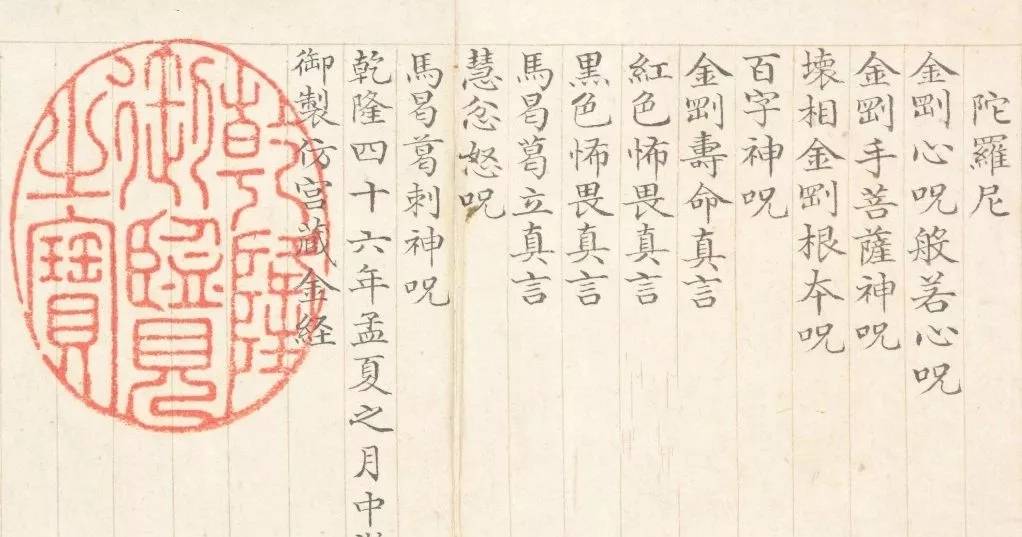 陀羅尼
金剛心呪般若心呪
金剛手菩薩神呪
壊相金剛根本呪
百字神呪
金剛壽命真言
紅色怖畏真言
黒色怖畏真言
馬曷葛立真言
慧忿怒呪
馬曷葛刺神呪
乾隆四十六年孟夏之月中
御製仿宫藏金経
乾隆
御臨見
之寶